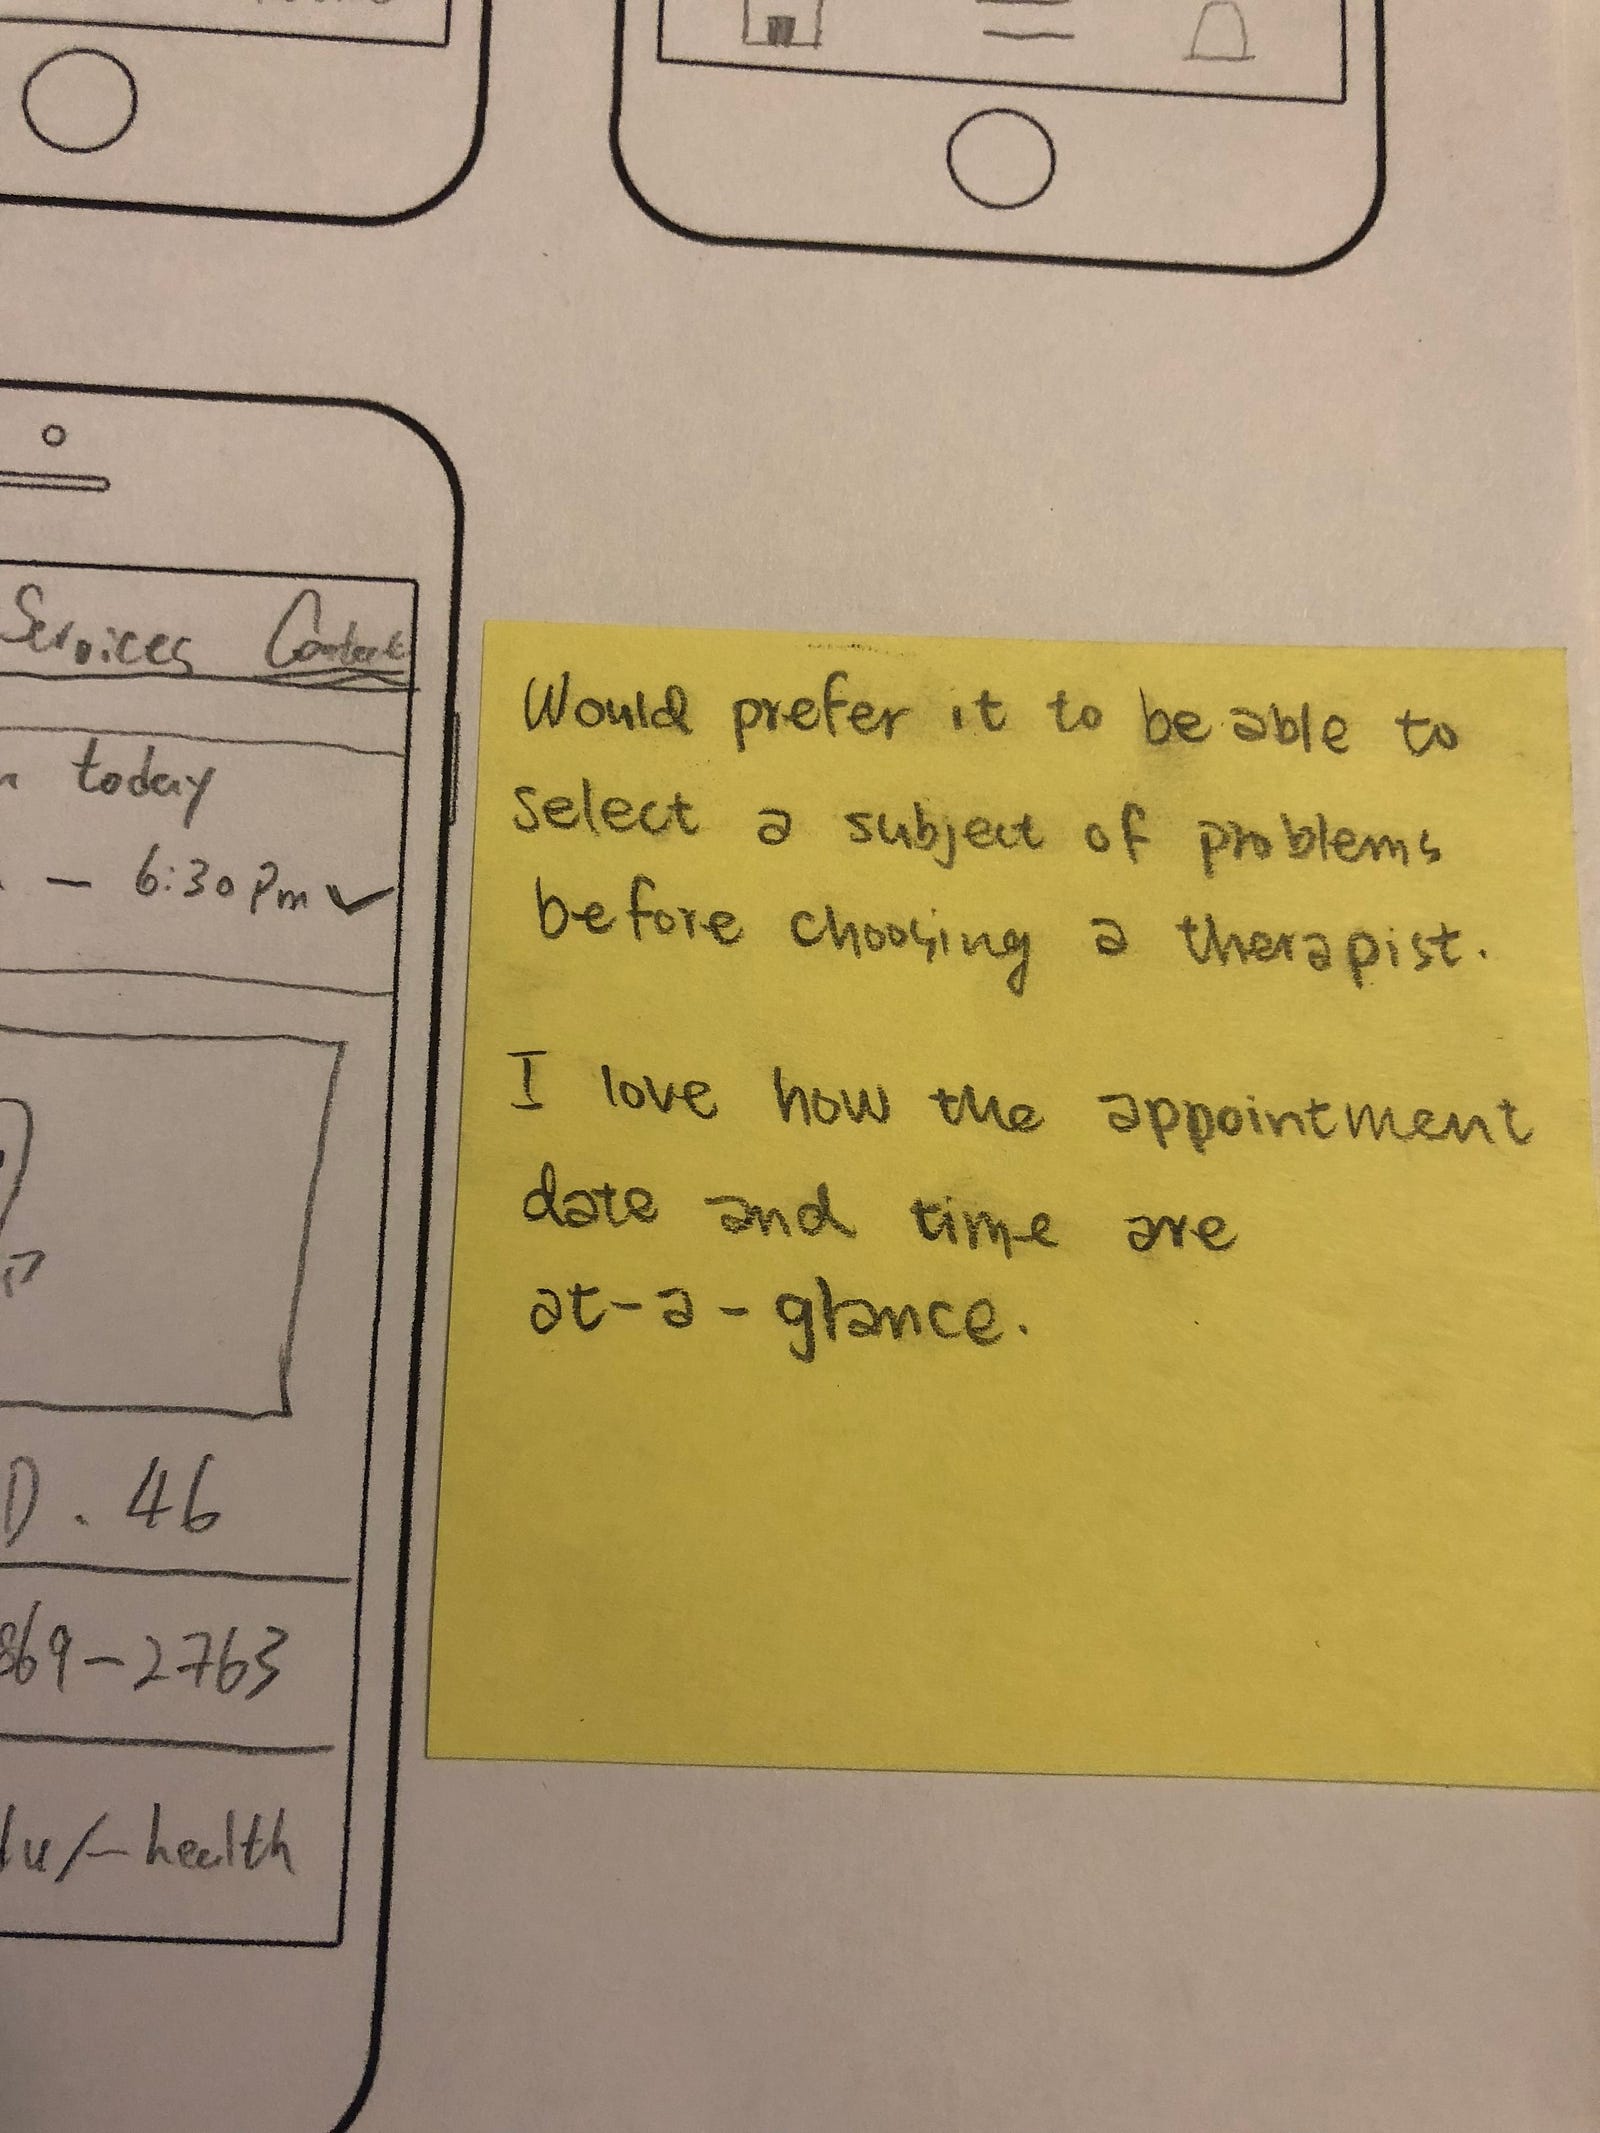 Services Contact
today
– 6:30 Pm
D. 46
869-2763
health
Would prefer it to be able to
select a subject of problems
before choosing a therapist.
I love how the appointment
date and time are
at-a-glance.